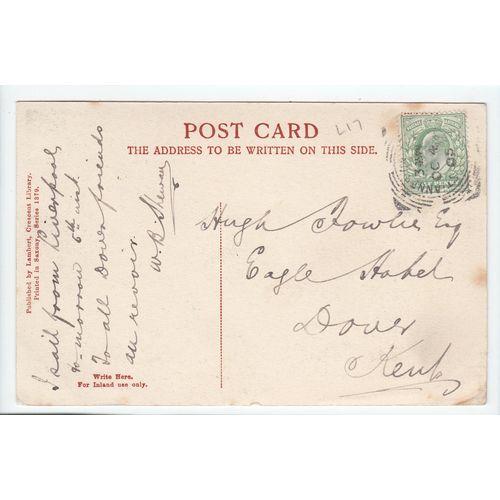 POST CARD
THE ADDRESS TO BE WRITTEN ON THIS SIDE.
L17
I sail from Liverpool
to-morrow 5th inst.
To all Dover friends
au revoir.
Hugh Fowlie Esq
Eagle Hotel
Dover
Kent
Write Here.
For Inland use only.
Published by Lambert, Crescent Library.
Printed in Saxony. Series 1379.